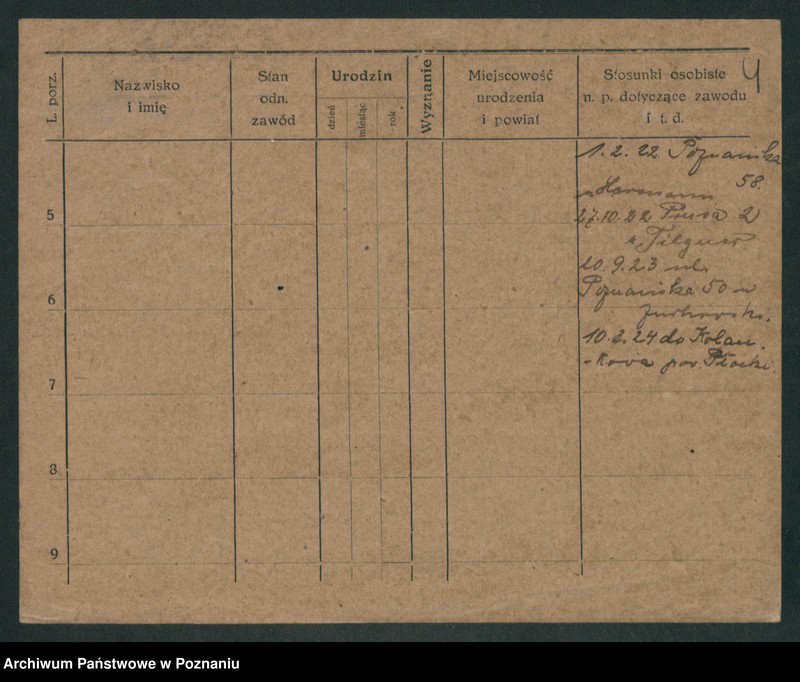 L. porz.
Nazwisko
i imię
Stan
odn.
zawód
Urodzin
dzień
miesiąc
rok
Wyznanie
Miejscowość
urodzenia
i powiat
Stosunki osobiste
n. p. dotyczące zawodu
i t. d.
4
1. 2. 22. Poznańska
58.
u Hermann
27.10.22 2
u
10. 9. 23 ul.
Poznańska 50 u
10. 24 do Kolan
-kowa pow Płocki
5
6
7
8
9
Archiwum Państwowe w Poznaniu